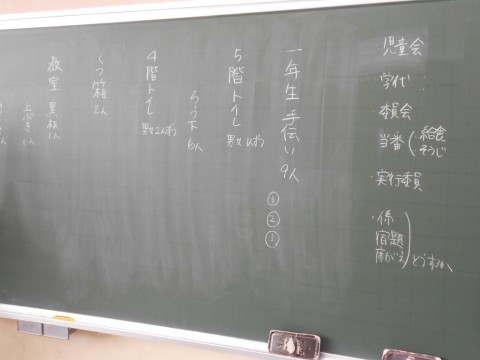 児童会
・学代
・委員会
当番(給食
そうじ
・実行委員
・係
宿題
席がえ
どうするか
一年生 手伝い 9人
①
②
③
5階トイレ 男女1人ずつ
ろう下 6人
4階トイレ 男女2人ずつ
くつ箱 2人
教室 黒板1人